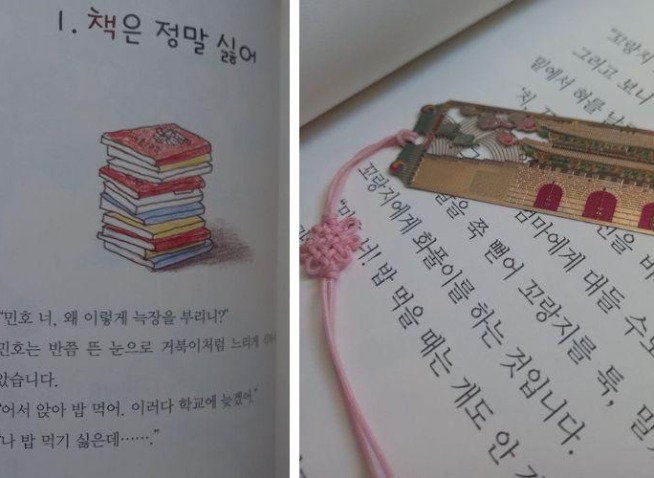 1. 책은 정말 싫어
"민호 너, 왜 이렇게 늑장을 부리니?"
민호는 반쯤 뜬 눈으로 거북이처럼 느리게
았습니다.
"어서 앉아 밥 먹어. 이러다 학교에 늦겠어."
"나 밥 먹기 싫은데……."
"꼬랑지
그러고 보니
밑에서 혀를
"치,
엄마에게 대들 수도
쭉 뻗어 꼬랑지를 툭,
꼬랑지에게 화풀이를 하는 것입니다.
너! 밥 먹을 때는 개도 안